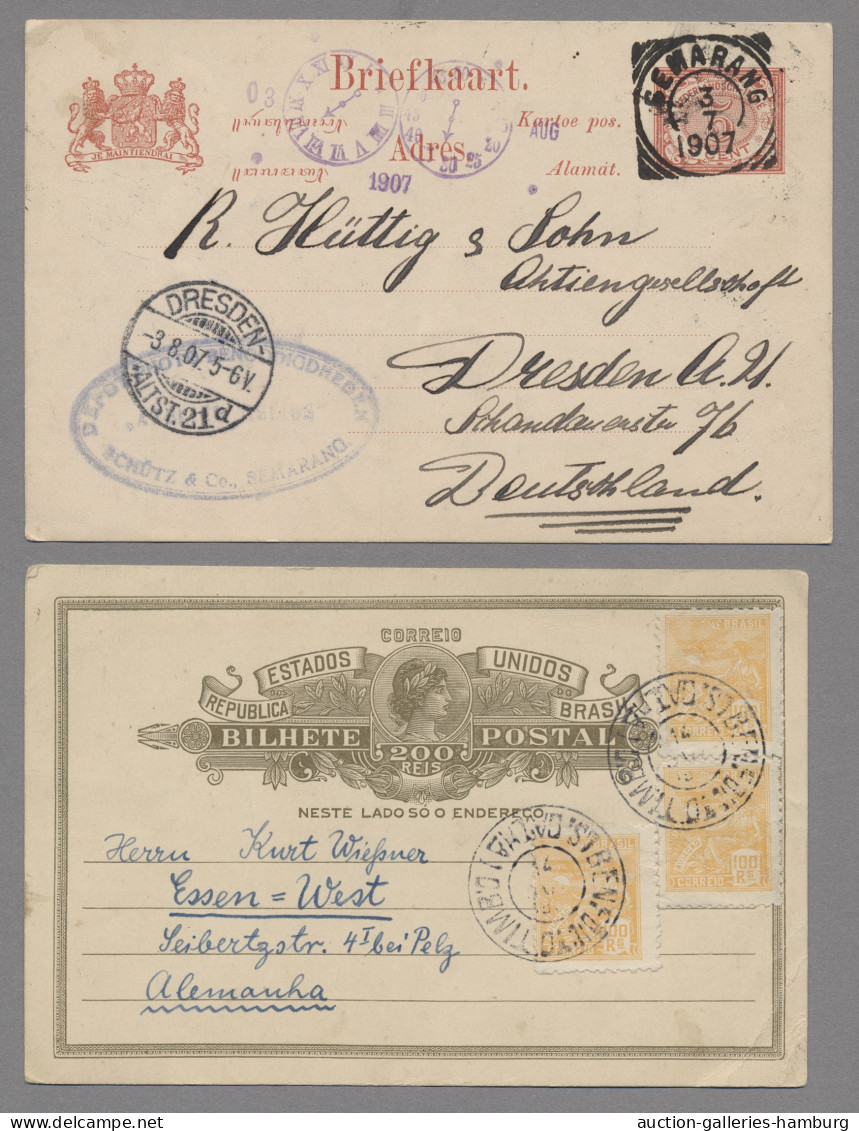 Briefkaart.
JE MAINTIENDRAI
Kartoe pos.
Adres.
Alamát.
03
AUG
1907
SEMARANG
3
7
1907
R. Hüttig & Sohn
Aktiengesellschaft
Dresden A. 21
Schandauerstr 76
Deutschland.
DRESDEN-
-3.8.07. 5-6V.
ALTST. 21 d
SCHÜTZ & Co., SEMARANG
CORREIO
ESTADOS UNIDOS
REPUBLICA DO BRASIL
BILHETE POSTAL
200
REIS
NESTE LADO SÓ O ENDEREÇO
Herrn Kurt Wießner
Essen = West
Seibertzstr. 4 I bei Pelz
Alemanha
BRASIL
CORREIO
100
RS
14
auction-galleries-hamburg